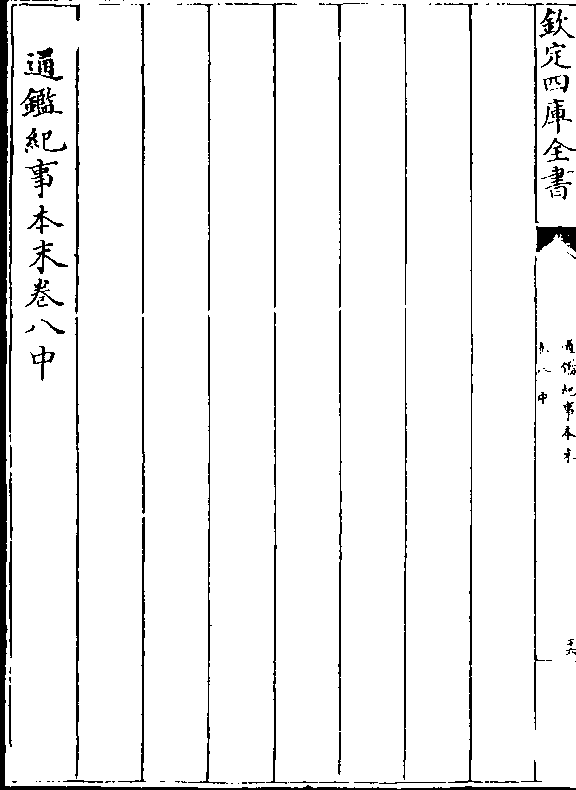 欽定四庫全書
通鑑紀事本末
卷八中
通鑑紀事本末卷八中